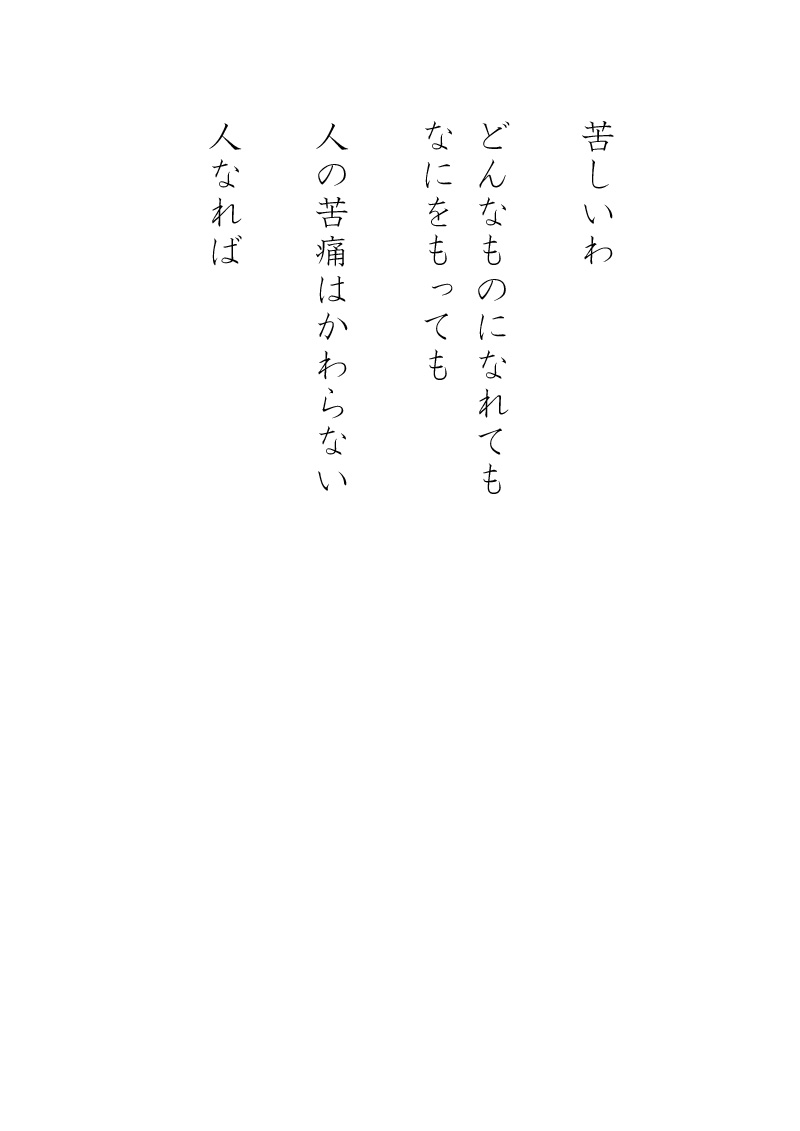 苦しいわ
どんなものになれても
なにをもっても
人の苦痛はかわらない
人なれば